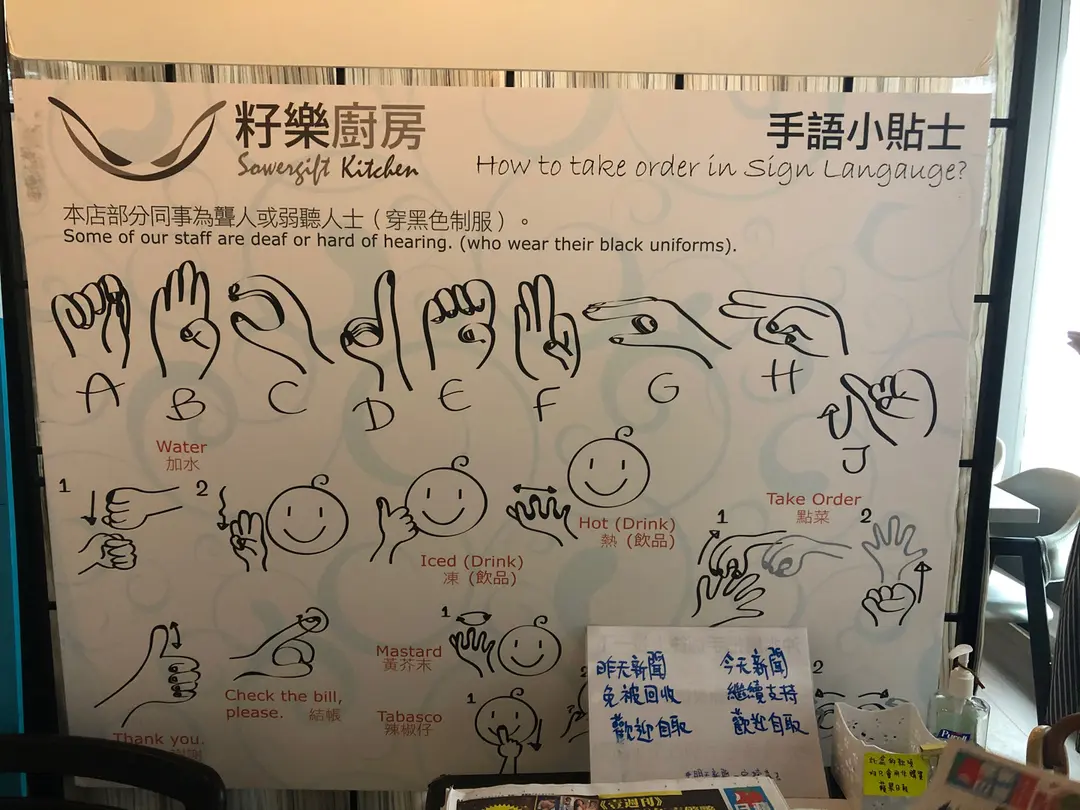 籽樂廚房
Sowergift Kitchen
手語小貼士
How to take order in Sign Langauge?
本店部分同事為聾人或弱聽人士（穿黑色制服）。
Some of our staff are deaf or hard of hearing. (who wear their black uniforms).
A B C D E F G H
J
Water
加水
1
2
Iced (Drink)
凍 (飲品)
Hot (Drink)
熱 (飲品)
Take Order
點菜
1
2
Thank you.
Check the bill,
please. 結帳
Mastard
黃芥末
1
Tabasco
辣椒仔
1
2
2
昨天新聞
免被回收
歡迎自取
今天新聞
繼續支持
歡迎自取
Purell
蘋果日報